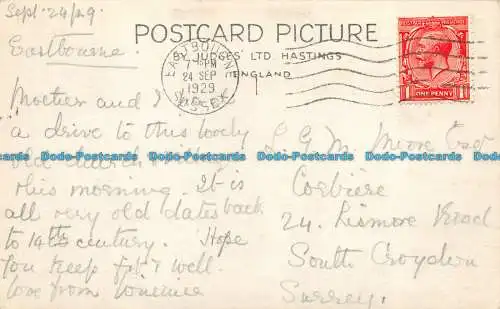 Sept. 24/29.
Eastbourne.
POSTCARD PICTURE
BY JUDGES' LTD HASTINGS
ENGLAND
EASTBOURNE
PM
24 SEP
1929
SUSSEX
POSTAGE REVENUE
1 ONE PENNY 1
Mother and I
a drive to this lovely
old church
this morning. It is
all very old dates back
to 14th century. Hope
you keep fit & well.
love from
L. G. M. Moore Esq
Corbiere
24. Lismore Road
South Croydon
Surrey.
Postcards Postcards Postcards Postcards Postcards